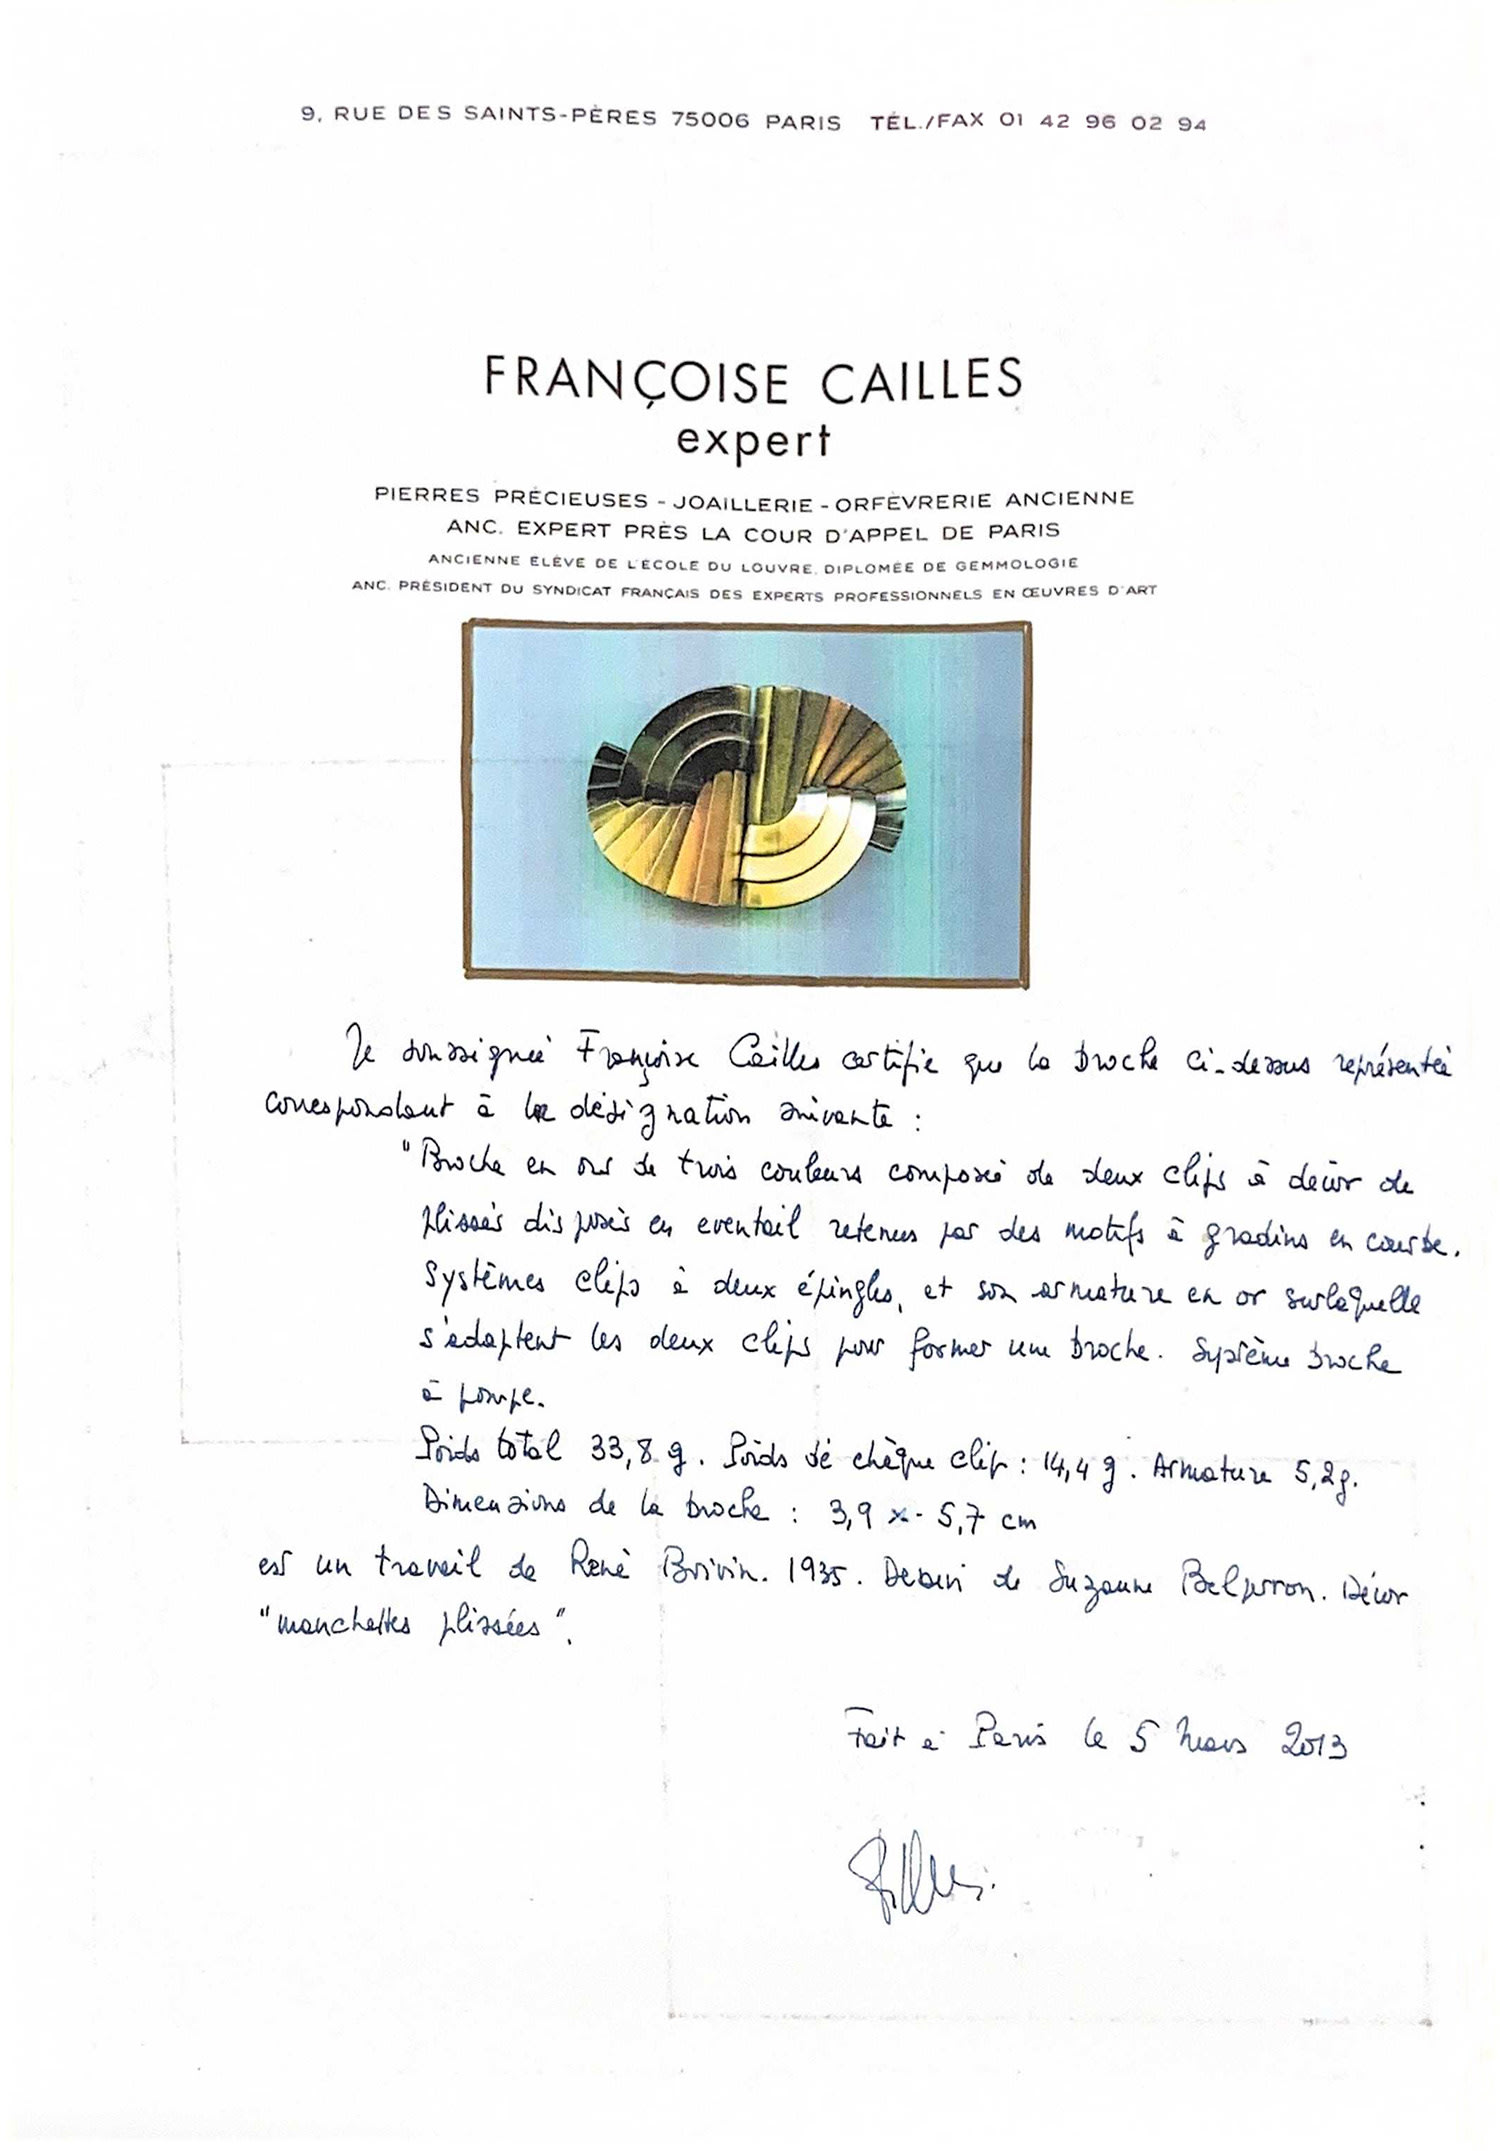 9, RUE DES SAINTS-PÈRES 75006 PARIS TÉL./FAX 01 42 96 02 94
FRANÇOISE CAILLES
expert
PIERRES PRÉCIEUSES - JOAILLERIE - ORFÈVRERIE ANCIENNE
ANC. EXPERT PRÈS LA COUR D'APPEL DE PARIS
ANCIENNE ÉLÈVE DE L'ÉCOLE DU LOUVRE, DIPLOMÉE DE GEMMOLOGIE
ANC. PRÉSIDENT DU SYNDICAT FRANÇAIS DES EXPERTS PROFESSIONNELS EN ŒUVRES D'ART
Je soussignée Françoise Cailles certifie que la broche ci-dessus représentée
correspondant à la désignation suivante :
"Broche en or de trois couleurs composée de deux clips à décor de
plissés disposés en eventail retenus par des motifs à gradins en courbe.
Systèmes clips à deux épingles, et son armature en or sur laquelle
s'adaptent les deux clips pour former une broche. Système broche
à pompe.
Poids total 33,8 g. Poids de chèque clip : 14,4 g. Armature 5,2g.
Dimensions de la broche : 3,9 x 5,7 cm
est un travail de René Boivin. 1935. Dessin de Suzanne Belperron. Décor
"manchettes plissées".
Fait à Paris le 5 Mars 2013